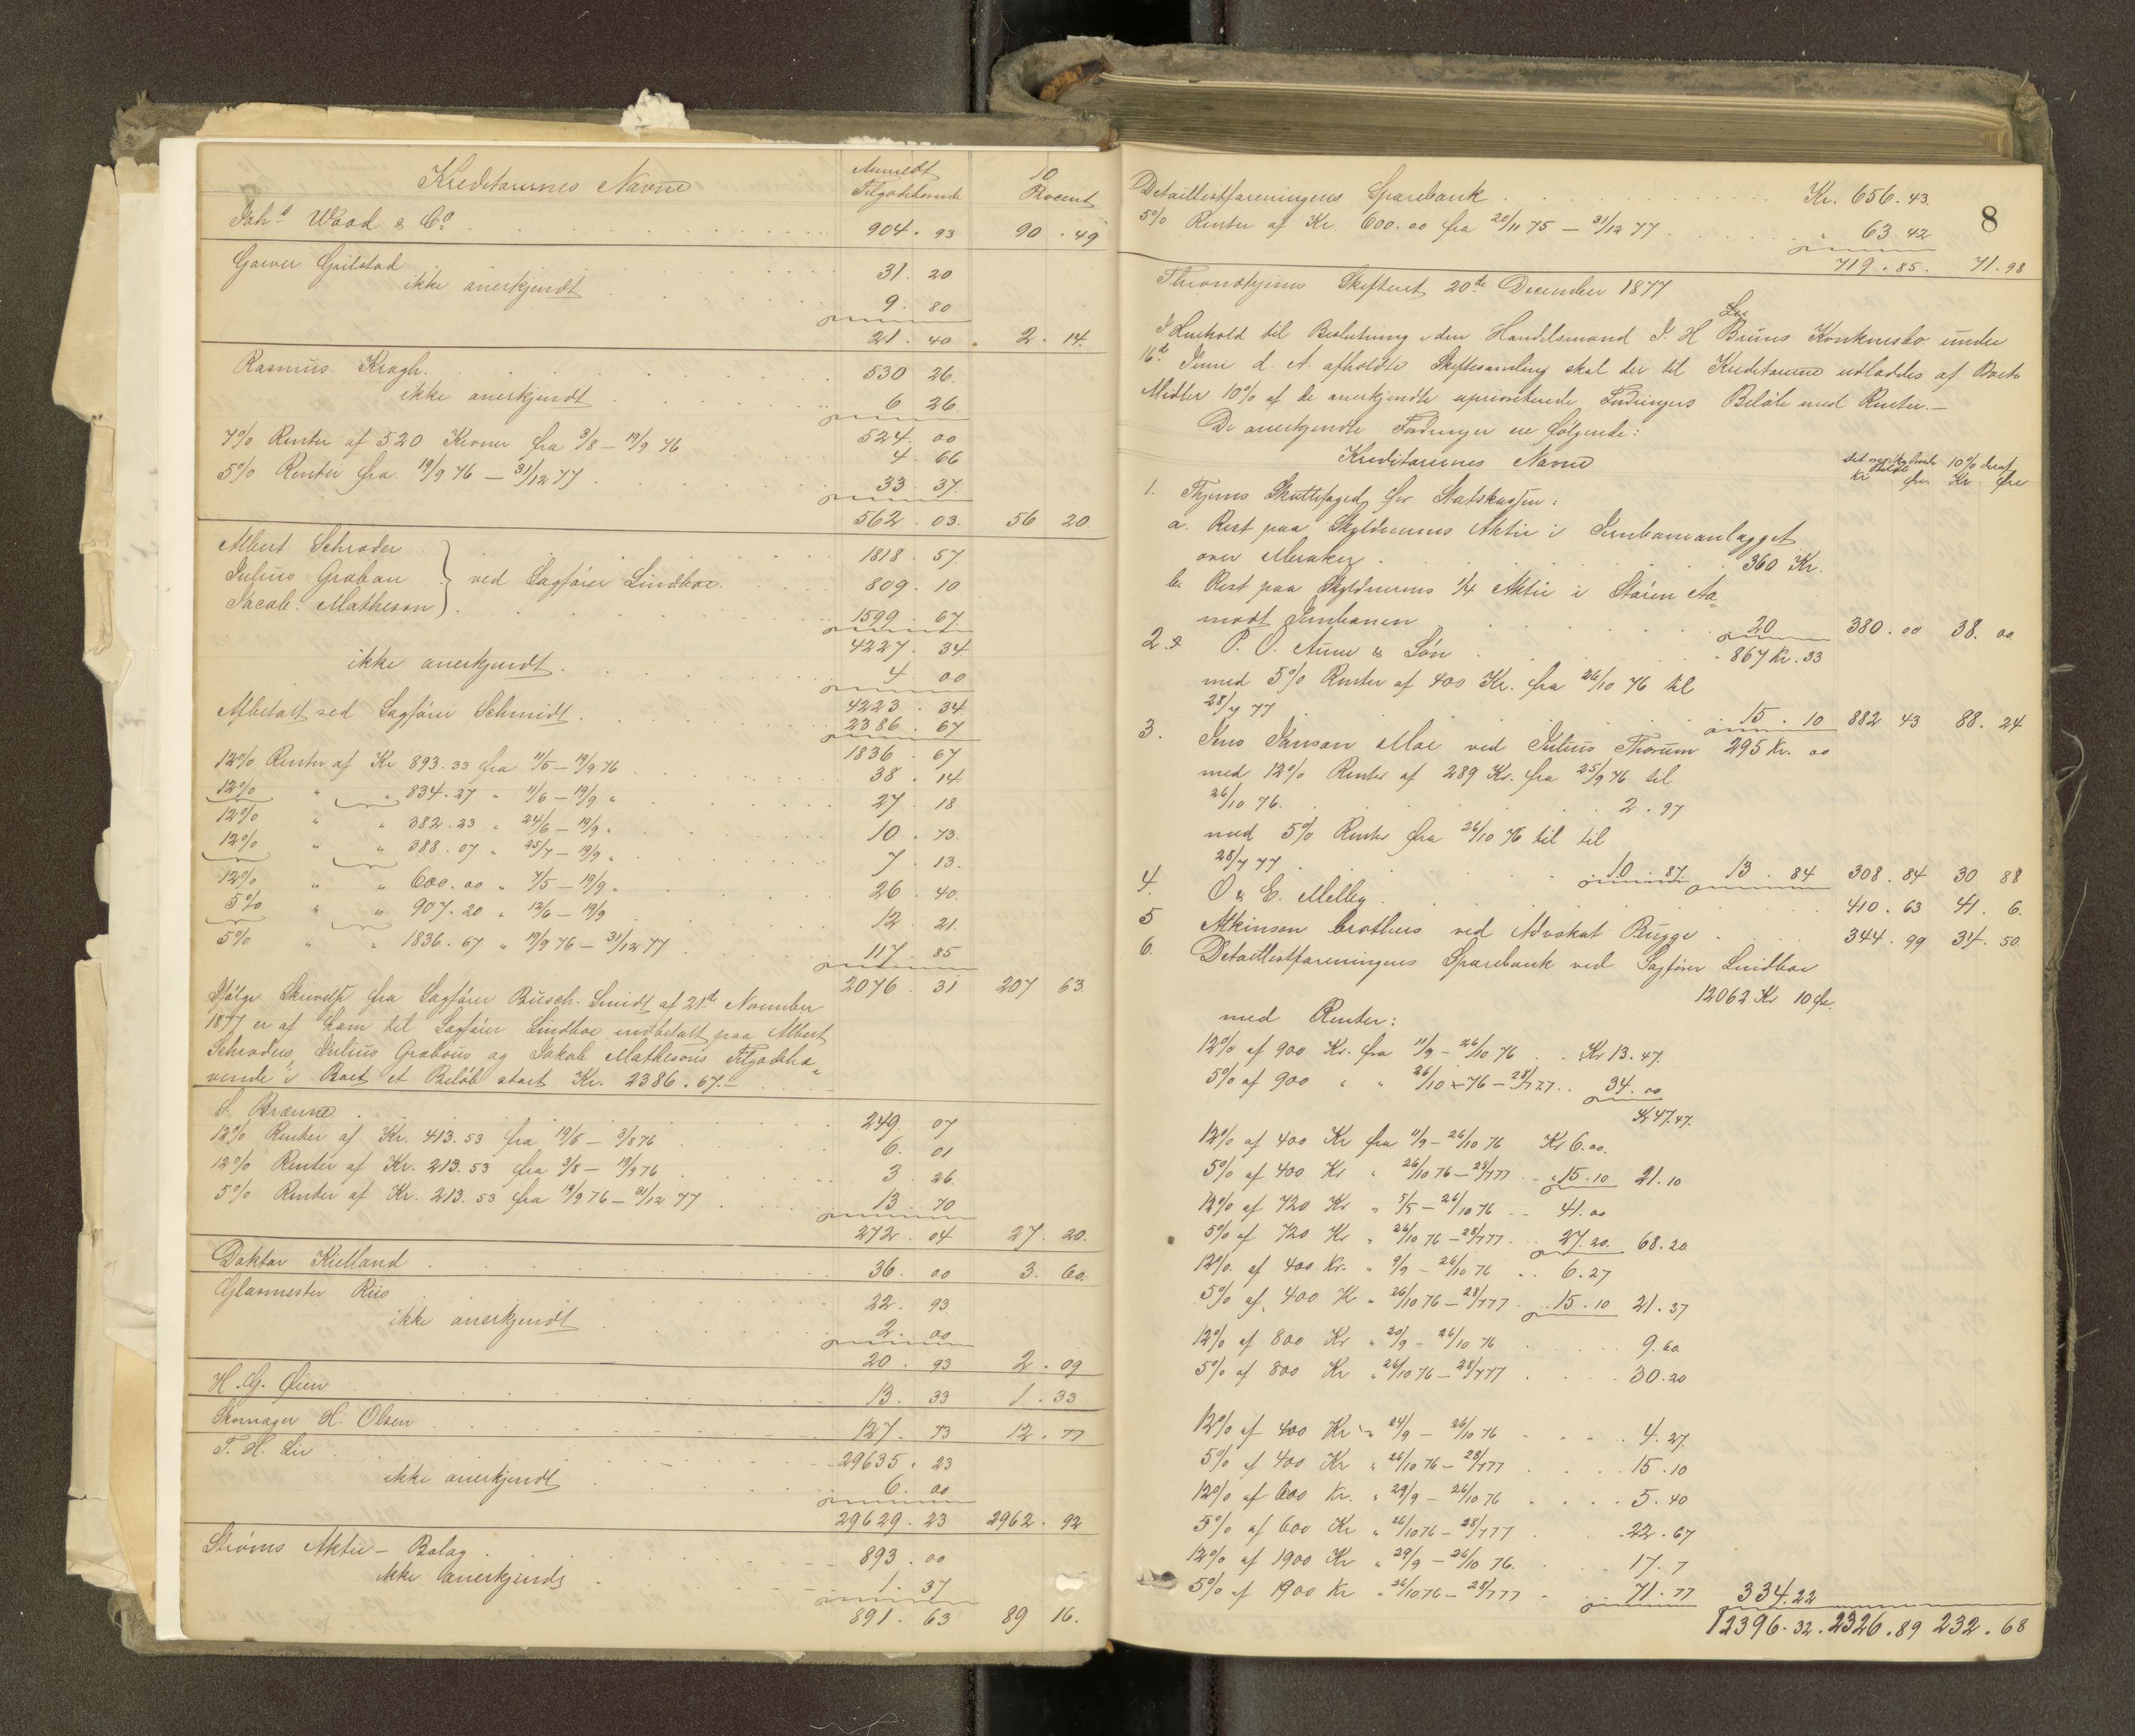 Kreditorernes Navne Anmeldt Tilgodehavende 10 Procent
Joh.s Wood & Co. 904. 93 90. 49
Garver Grilstad 31. 20
ikke anerkjendt 9. 80
21. 40. 2. 14.
Rasmus Krogh. 530 26.
ikke anerkjendt 6 26.
524. 00
7% Renter af 520 Kroner fra 3/8 – 19/9 76 4. 66
5% Renter fra 19/9 76 – 31/12 77 33. 37.
562. 03. 56 20.
Albert Schroder 1818. 57.
Julius Grabau } ved Sagfører Lindboe. 809. 10
Jacob Matheson) 1599. 67.
4227. 34
ikke anerkjendt. 4. 00
4223. 34
Afbetalt ved Sagfører Schmidt. 2386. 67
1836. 67
12% Renter af Kr. 893. 33 fra 11/5 – 19/9 76 38. 14
12% " " 834. 27 " 11/6 – 19/9 " 27. 18
12% " " 382. 23 " 24/6 – 19/9 " 10. 73.
12% " " 388. 07 " 25/7 – 19/9 " 7. 13.
12% " " 600. 00 " 7/5 – 19/9 " 26. 40.
5% " " 907. 20 " 12/6 – 19/9 12. 21.
5% " " 1836. 67 " 19/9 76 – 31/12 77 117. 85
2076. 31 207 63.
Ifølge Skrivelse fra Sagfører Busch. Smidt af 21de November
1877 er af ham til Sagfører Lindboe indbetalt paa Albert
Schroders, Julius Grabaus og Jakob Mathesons Tilgodeha-
vende i Boet et Beløb stort Kr. 2386. 67. –
S. Brænne 249. 07
12% Renter af Kr. 413. 53 fra 19/6 – 3/8 76 6. 01
12% Renter af Kr. 213. 53 fra 3/8 – 19/9 76 3. 26.
5% Renter af Kr. 213. 53 fra 19/9 76 – 31/12 77 13. 70
272. 04 27. 20.
Doktor Kielland 36. 00 3. 60.
Glasmester Riis 22. 93
ikke anerkjendt 2. 00
20. 93 2. 09
H. G. Øien 13. 33 1. 33
Skomager H. Olsen 127. 73 12. 77
T. H. Lie 29635. 23
ikke anerkjendt 6. 00
29629. 23 2962. 92
Strøms Aktie – Bolag 893. 00
ikke anerkjendt 1. 37
891. 63 89 16.
Detaillistforeningens Sparebank Kr. 656. 43.
8
5% Renter af Kr. 600. 00 fra 20/11 75 – 31/12 77 " 63. 42
719. 85. 71. 98
Throndhjems Skifteret 20de December 1877
Lie
I Henhold til Beslutning i den Handelsmand I. H Bruns Konkursbo under
16de Juni d. A. afholdte Skiftesamling skal der til Kreditorerne udloddes af Boets
Midler 10% af de anerkjendte uprioriterede Fordringers Beløb med Renter. –
De anerkjendte Fordringer ere følgende:
Kreditorernes Navne det anerkjendte Beløb 10% deraf
Kr Øre. Kr Øre
1. Thjems Skattefoged for Statskassen:
a. Rest paa Skyldnerens Aktie i Jernbaneanlægget
over Meraker 360 Kr.
b. Rest paa Skyldnerens 1/4 Aktie i Støren Aa-
modt Jernbanen 20 380. 00 38. 00
2. P. O. Aune & Søn 867 Kr. 33
med 5% Renter af 400 Kr. fra 26/10 76 til
28/7 77 15. 10 882 43 88. 24
3. Jens Janson Moe ved Julius Thorum 295 Kr. 00
med 12% Renter af 289 Kr. fra 25/9 76 til
26/10 76. 2. 97
med 5% Renter fra 26/10 76 til til
28/7 77 10. 87. 13. 84 308. 84 30 88
4. O & E. Melbey 410. 63 41. 6.
5 Atkinson brothers ved Advokat Bugge 344. 99 34. 50.
6. Detaillistforeningens Sparebank ved Sagfører Lindboe
12062 Kr 10 Øre.
med Renter:
12% af 900 Kr. fra 11/9 – 26/10 76 Kr 13. 47.
5% af 900 " " 26/10 – 76 – 28/7 77 34. 00
Kr 47. 47.
12% af 400 Kr fra 11/9 – 26/10 76 Kr 6. 00.
5% af 400 Kr " 26/10 76 – 28/7 77 " 15. 10 21. 10
12% af 720 Kr " 5/5 – 26/10 76 41. 00
5% af 720 Kr " 26/10 76 – 28/7 77 27. 20. 68. 20.
12% af 400 Kr. " 9/9 – 26/10 76 6. 27
5% af 400 Kr " 26/10 76 – 28/7 77 15. 10 21. 37
12% af 800 Kr " 20/9 – 26/10 76 9. 60
5% af 800 Kr " 26/10 76 – 28/7 77 30. 20
12% af 400 Kr " 24/9 – 26/10 76 4. 27.
5% af 400 Kr " 26/10 76 – 28/7 77 15. 10
12% af 600 Kr. " 29/9 – 26/10 76 5. 40
5% af 600 Kr " 26/10 76 – 28/7 77 22. 67
12% af 1900 Kr " 29/9 – 26/10 76. 17. 7
5% af 1900 Kr " 26/10 76 – 28/7 77 71. 77 334. 22
12396. 32. 2326. 89 232. 68